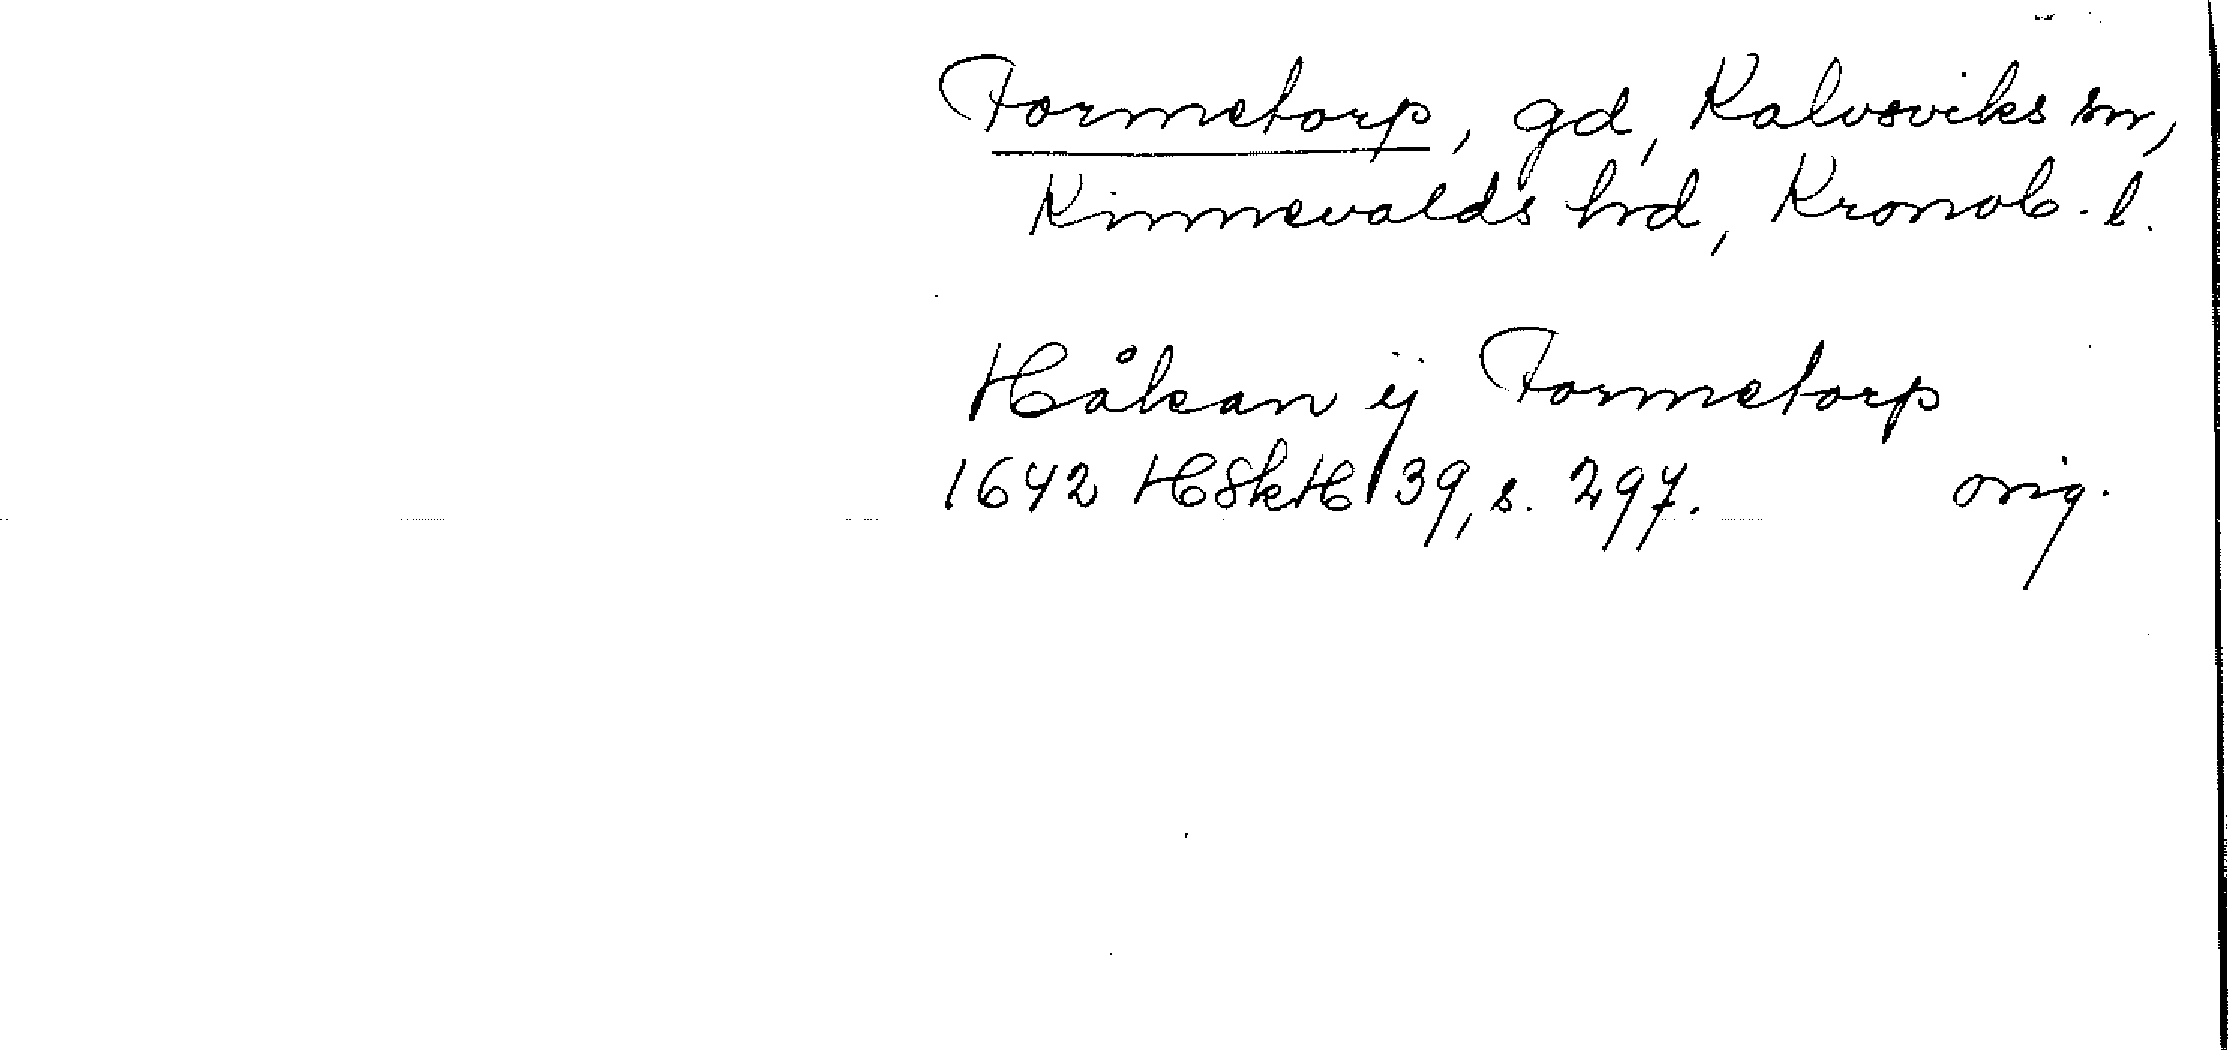 Tormetorp, gd, Kalvsviks sn,
Kinnevalds hrd, Kronob. l.
Håkan ij Tormetorp
1642 HSkH 39, s. 297. orig.